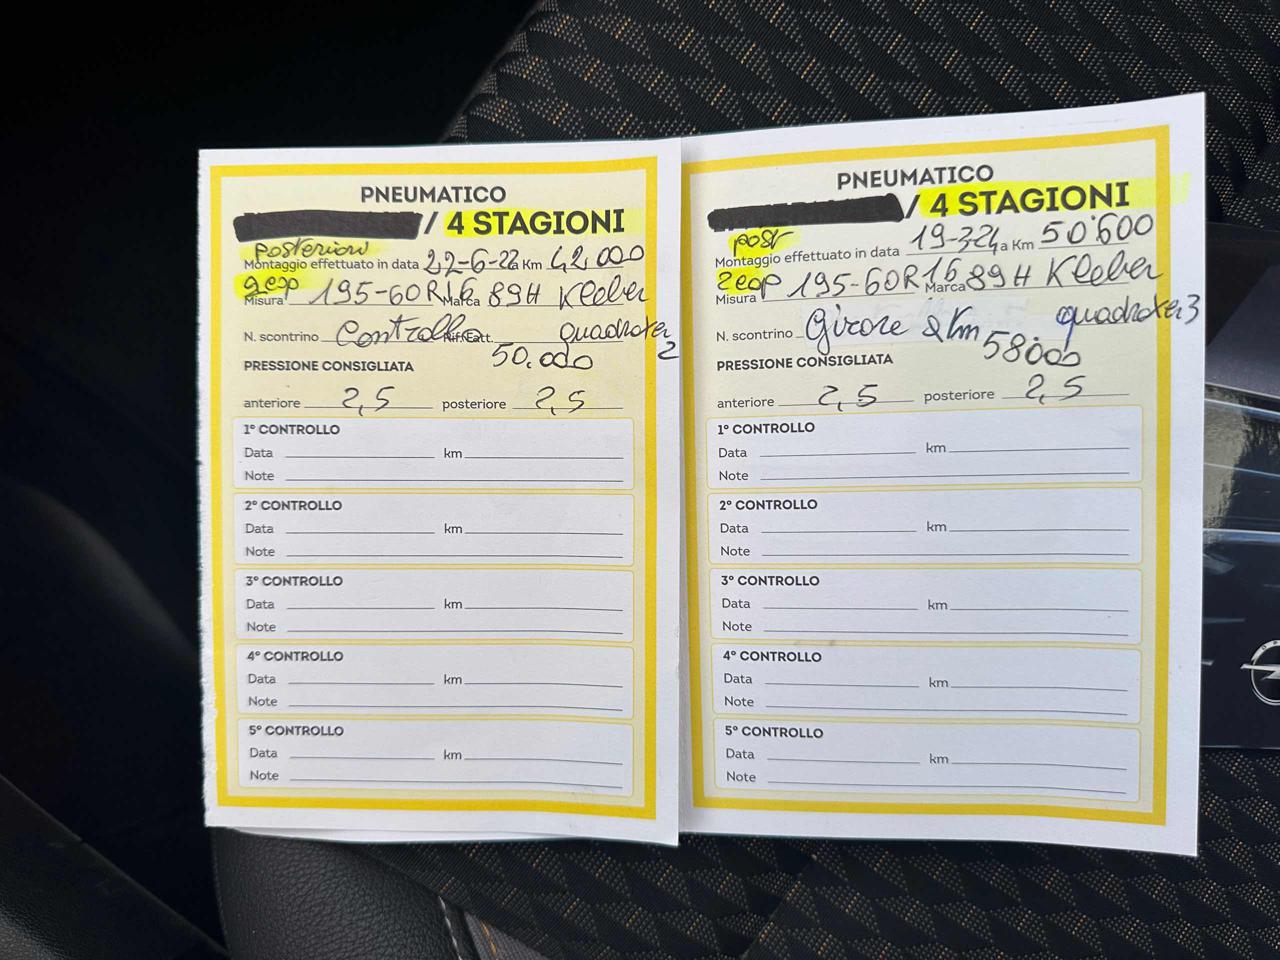 PNEUMATICO
/ 4 STAGIONI
posteriori
Montaggio effettuato in data 22-6-22 a Km 42.000
2 eop
Misura 195-60R16 Marca 89H Kleber
N. scontrino Controllo Rif. Fatt. quadraxer 2
50.000
PRESSIONE CONSIGLIATA
anteriore 2,5 posteriore 2,5
1° CONTROLLO
Data km
Note
2° CONTROLLO
Data km
Note
3° CONTROLLO
Data km
Note
4° CONTROLLO
Data km
Note
5° CONTROLLO
Data km
Note
PNEUMATICO
/ 4 STAGIONI
post
Montaggio effettuato in data 19-3-24 a Km 50.600
2 eop
Misura 195-60R16 Marca 89H Kleber
N. scontrino Girare Km quadraxer 3
58000
PRESSIONE CONSIGLIATA
anteriore 2,5 posteriore 2,5
1° CONTROLLO
Data km
Note
2° CONTROLLO
Data km
Note
3° CONTROLLO
Data km
Note
4° CONTROLLO
Data km
Note
5° CONTROLLO
Data km
Note